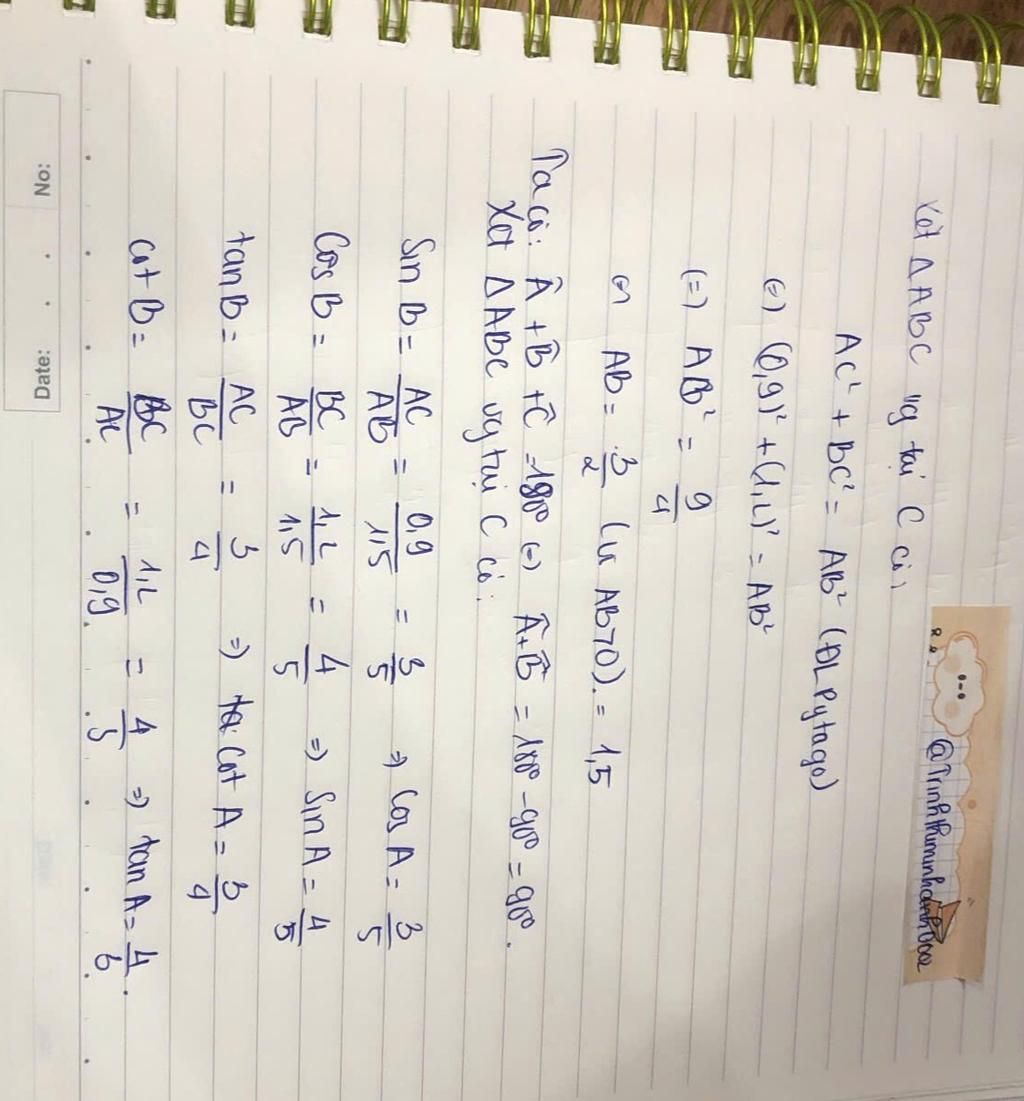 @Trinhthiminhanh6002
Xét ΔABC vg tại C có,
AC² + BC² = AB² (ĐL Pytago)
(=) (0,9)² + (1,2)² = AB²
(=) AB² = 9/4
(=) AB = 3/2 (vì AB>0). = 1,5
Ta có: Â + B̂ + Ĉ = 180° (=) Â + B̂ = 180° - 90° = 90°.
Xét ΔABC vg tại C có:
Sin B = AC/AB = 0,9/1,5 = 3/5 => Cos A = 3/5
Cos B = BC/AB = 1,2/1,5 = 4/5 => Sin A = 4/5
tan B = AC/BC = 3/4 => Cot A = 3/4
Cot B = BC/AC = 1,2/0,9 = 4/3 => tan A = 4/3.
No:
Date: